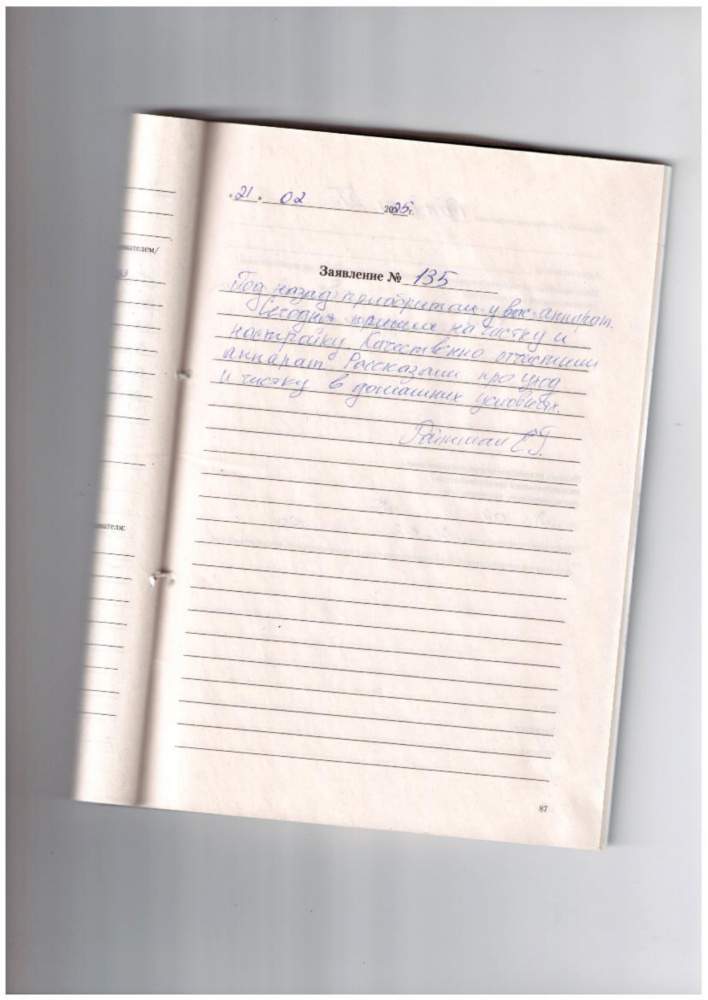 «21» 02 2025г.
вателем/
Заявление № 135
Год назад приобритали у вас аппарат.
Сегодня пришла на чистку и
настройку. Качественно отчистили
аппарат. Рассказали про уход
и чистку в домашних условиях.
вателя:
87